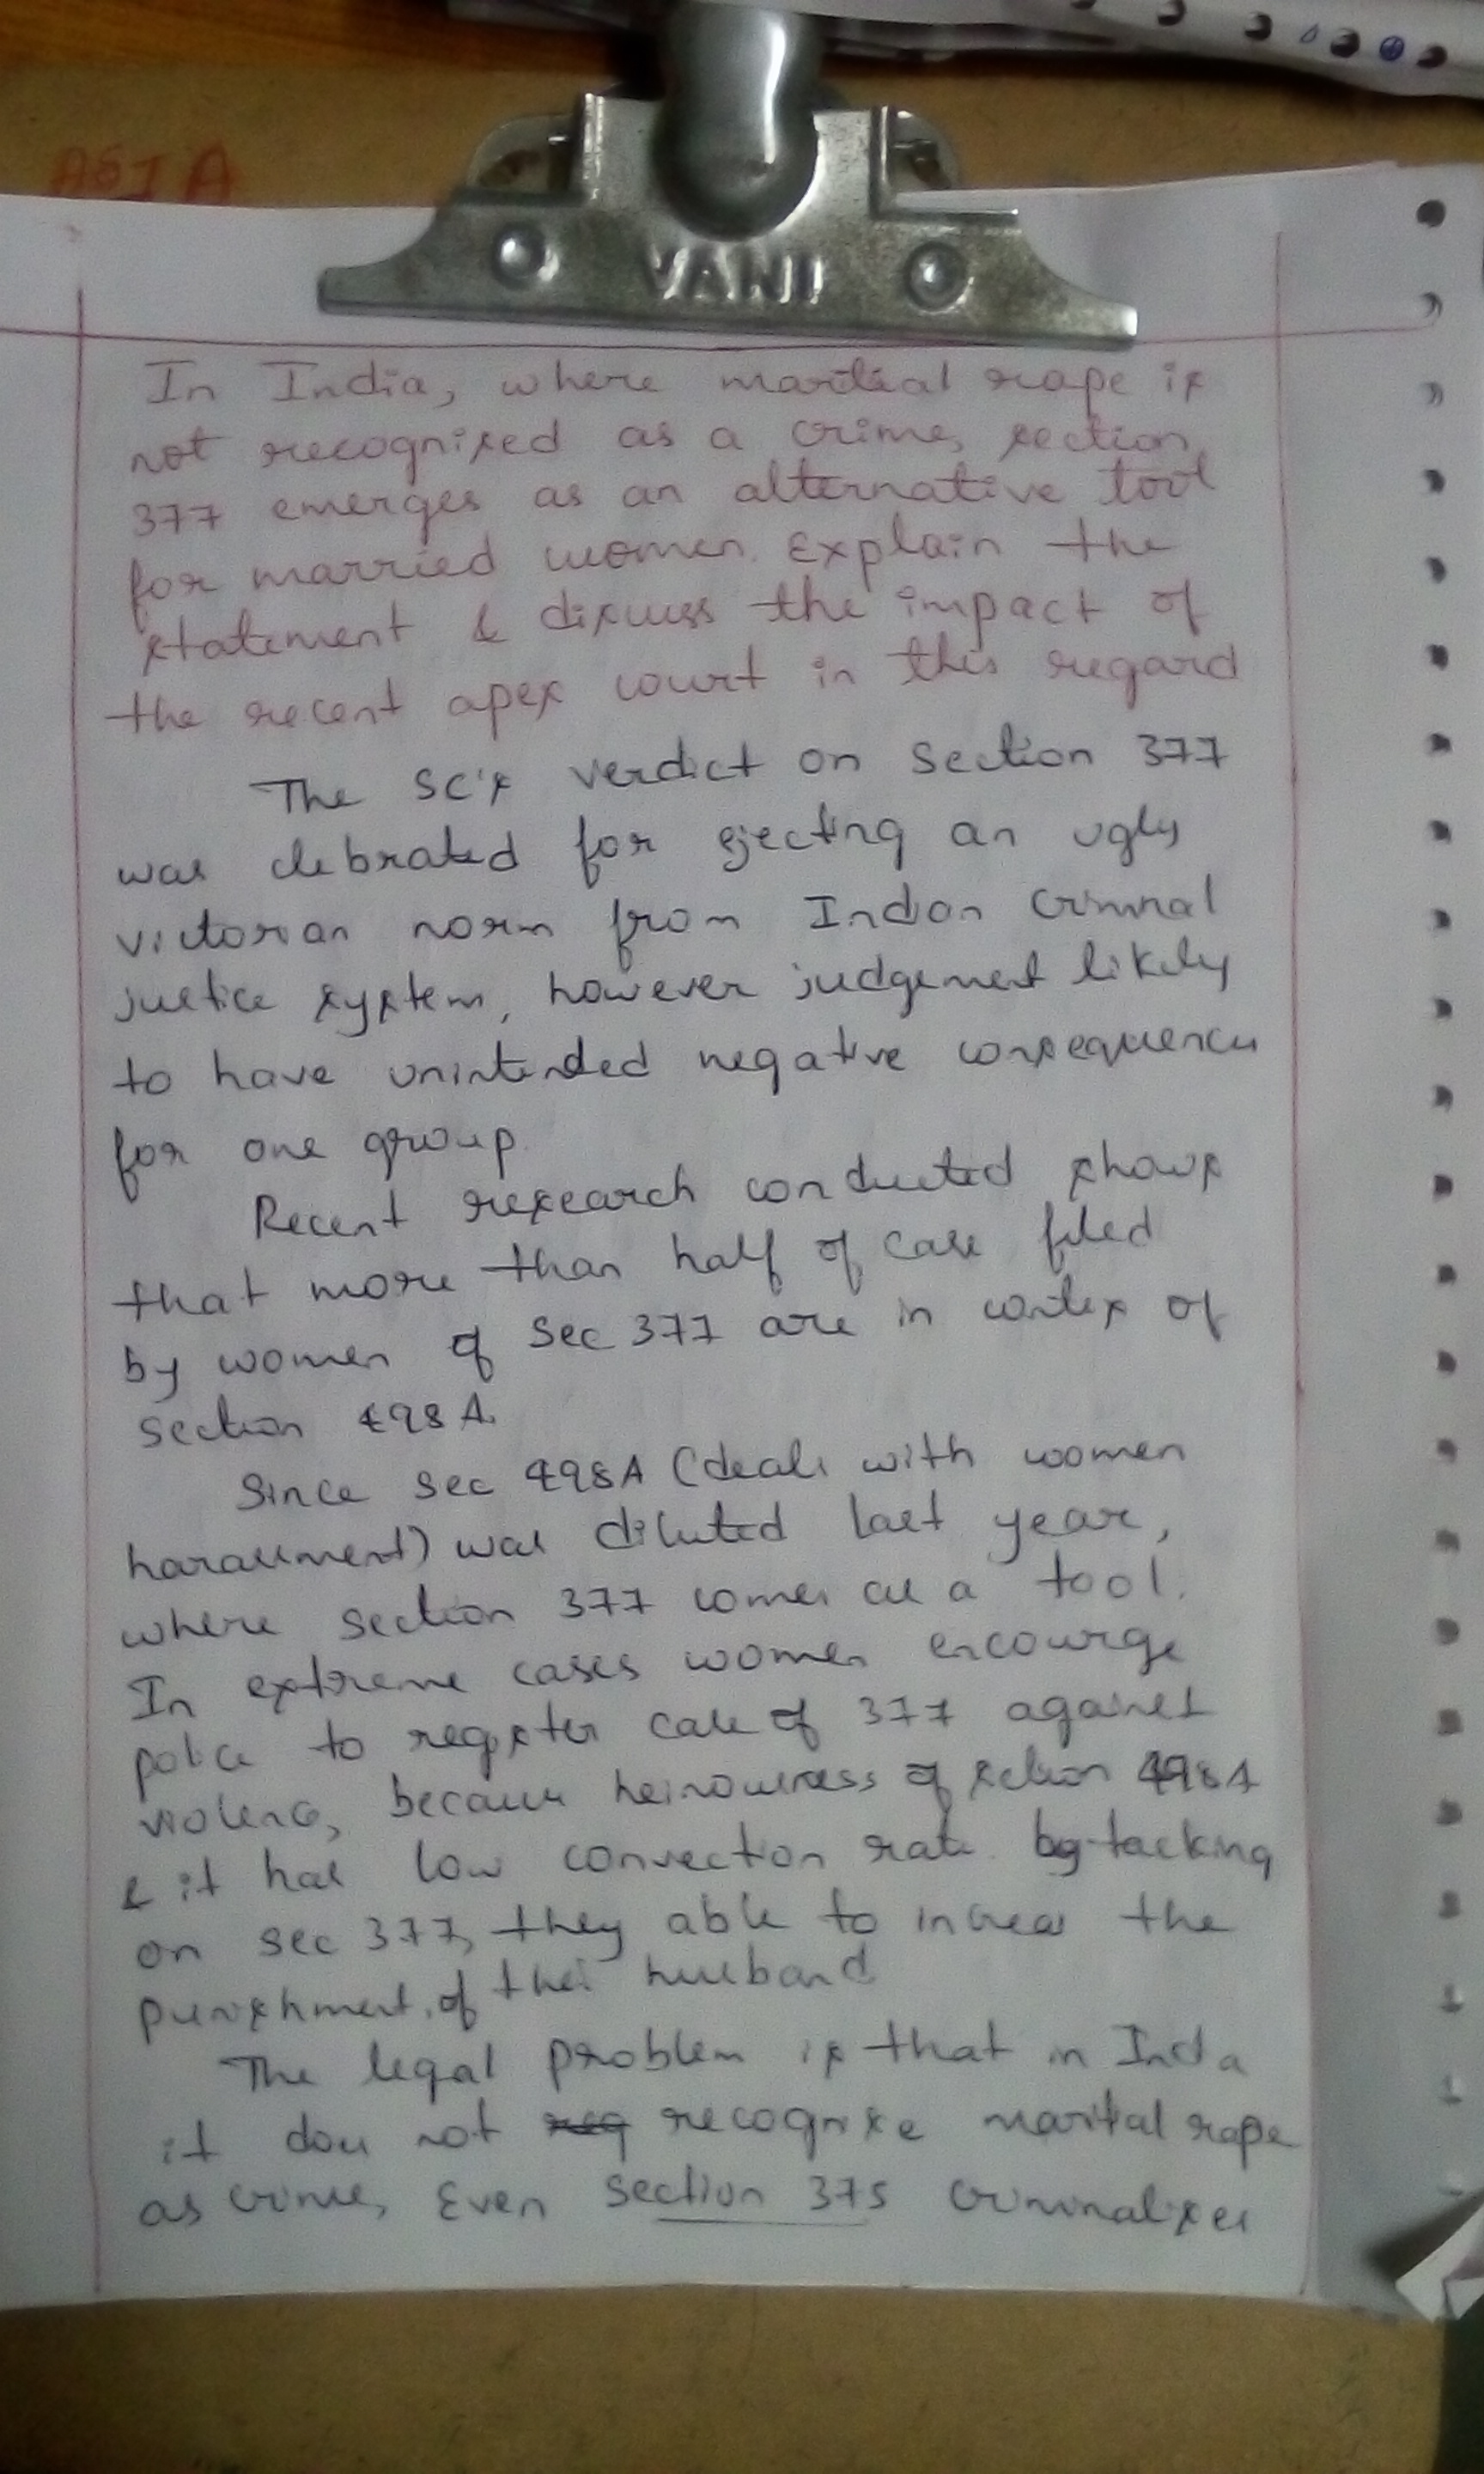 ASIA
VANI
In India, where maritial rape is
not recognised as a crime, section
377 emerges as an alternative tool
for married women. Explain the
statement & discuss the impact of
the recent apex court in this regard
The SC's verdict on section 377
was clebrated for ejecting an ugly
victorian norm from Indian criminal
justice system, however judgement likely
to have unintended negative consequences
for one group.
Recent research conducted shows
that more than half of case filed
by women of Sec 377 are in contex of
section 498A.
Since sec 498A (deals with women
harassment) was diluted last year,
where section 377 comes as a tool.
In extreme cases women encourge
police to register case of 377 against
violence, because heinousness of section 498A
& it has low convection rate. by tacking
on sec 377, they able to increas the
punishment of thei husband
The legal problem is that in India
it does not recognise marital rape
as crime, Even section 375 criminalises